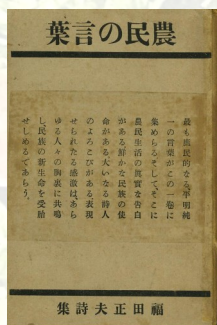 葉言の民農
最も庶民的なる、平明純
一の言葉がこの一巻に
集められる。そして、そこに
農民生活の眞實な告白
がある鮮かな民族の使
命がある大いなる詩人
のよろこびがある表現
せられたる感激は、あら
ゆる人々の胸裏に共鳴
し、民族の新生命を受胎
せしめるであらう。
集詩夫正田福